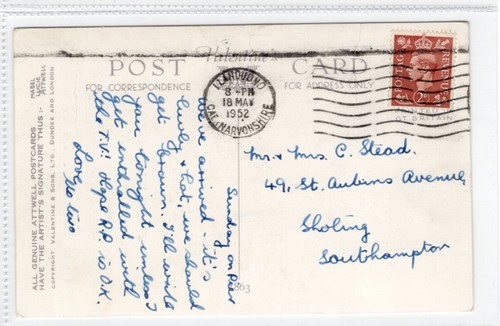 POST CARD
Valentine's
FOR CORRESPONDENCE
FOR ADDRESS ONLY
LLANDUDNO
8 - PM
18 MAY
1952
CAERNARVONSHIRE
POSTAGE
REVENUE
2D
Sunday on Pier
We've arrived - it's
lovely & hot, we should
get brown. I'll write
you tonight unless I
get enthralled with
the T.V! Hope R.R is O.K.
Love
Mr. & Mrs C. Stead.
49, St. Aubins Avenue,
Sholing
Southampton
MABEL
LUCIE
ATTWELL
ALL GENUINE ATTWELL POSTCARDS
HAVE THE ARTIST'S SIGNATURE THUS :-
COPYRIGHT VALENTINE & SONS, LTD., DUNDEE AND LONDON